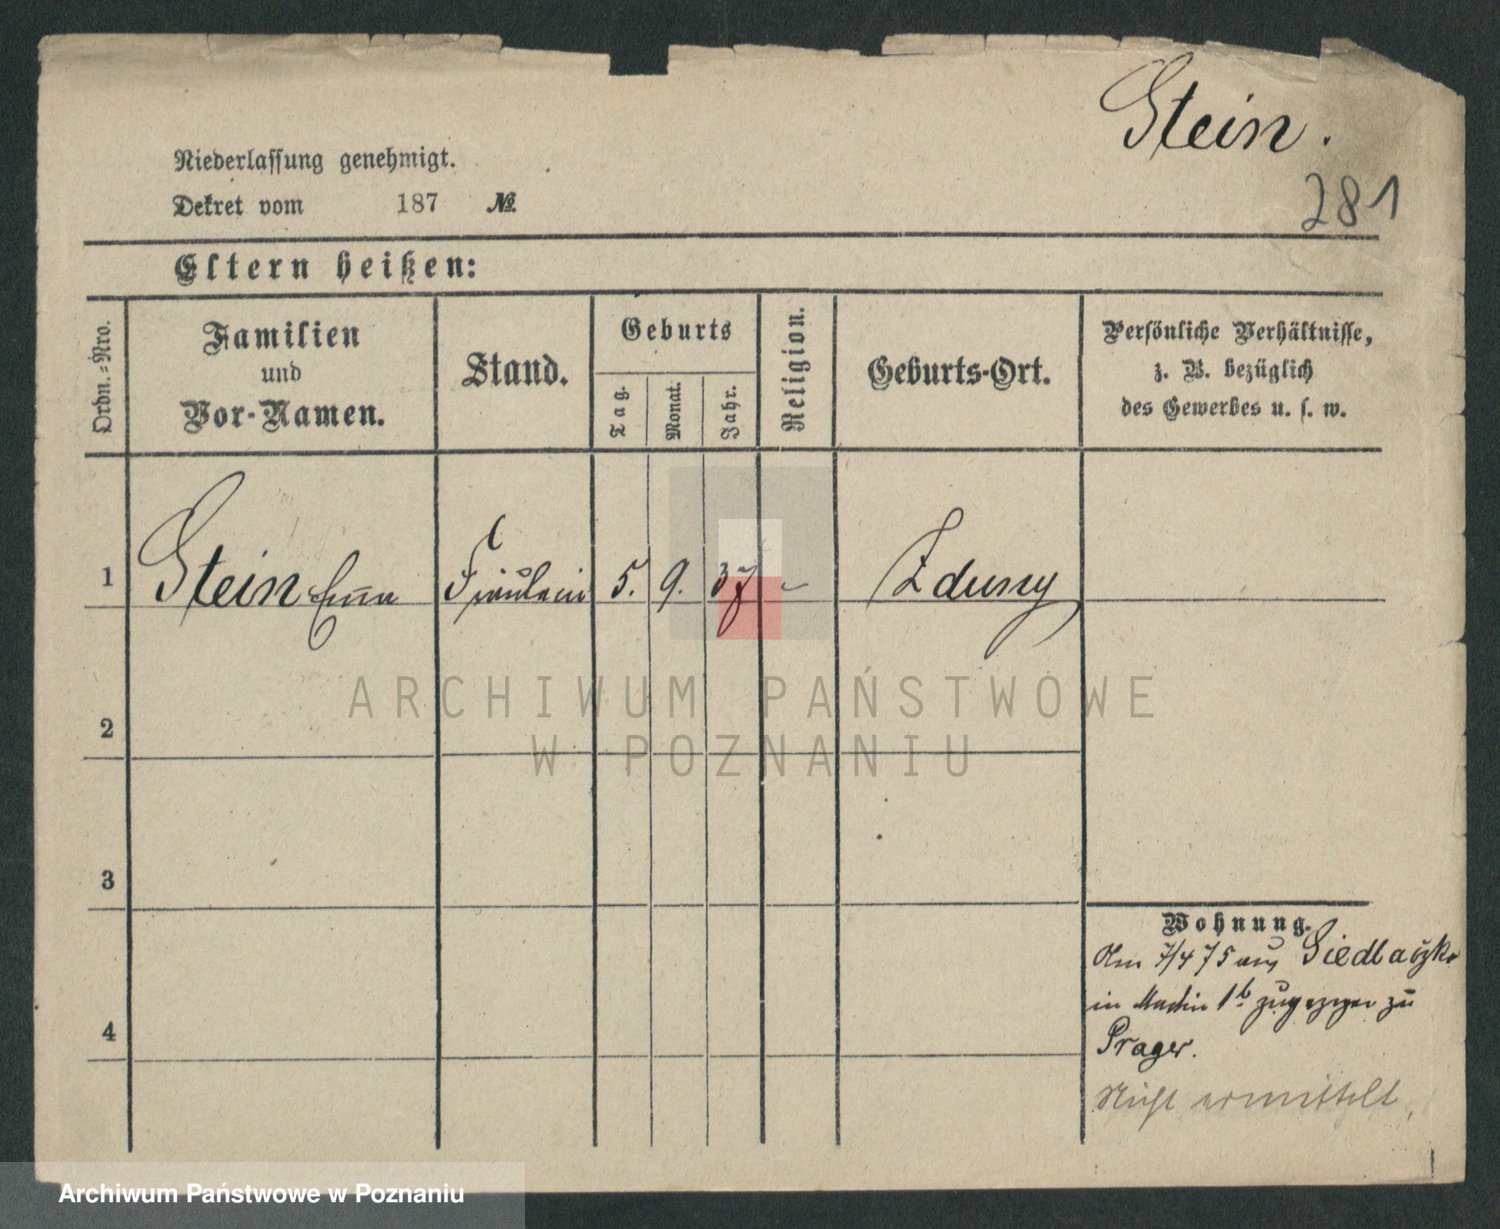 Stein.
281
Niederlassung genehmigt.
Dekret vom 187 №
Eltern heißen:
Ordn.-Nro.
Familien
und
Vor-Namen.
Stand.
Geburts
Tag.
Monat.
Jahr.
Religion.
Geburts-Ort.
Persönliche Verhältnisse,
z. B. bezüglich
des Gewerbes u. s. w.
1 Stein Fräulein 5. 9. 37 Zduny
2
3
4
Wohnung.
Am 7/4 75 aus
in 1b zugezogen zu
Prager.
Nicht ermittelt.
ARCHIWUM PAŃSTWOWE
W POZNANIU
Archiwum Państwowe w Poznaniu